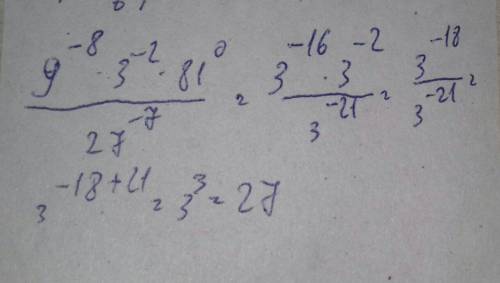 9^-8 · 3^-2 · 81^0 / 27^-7 = 3^-16 · 3^-2 / 3^-21 = 3^-18 / 3^-21 =
3^-18+21 = 3^3 = 27